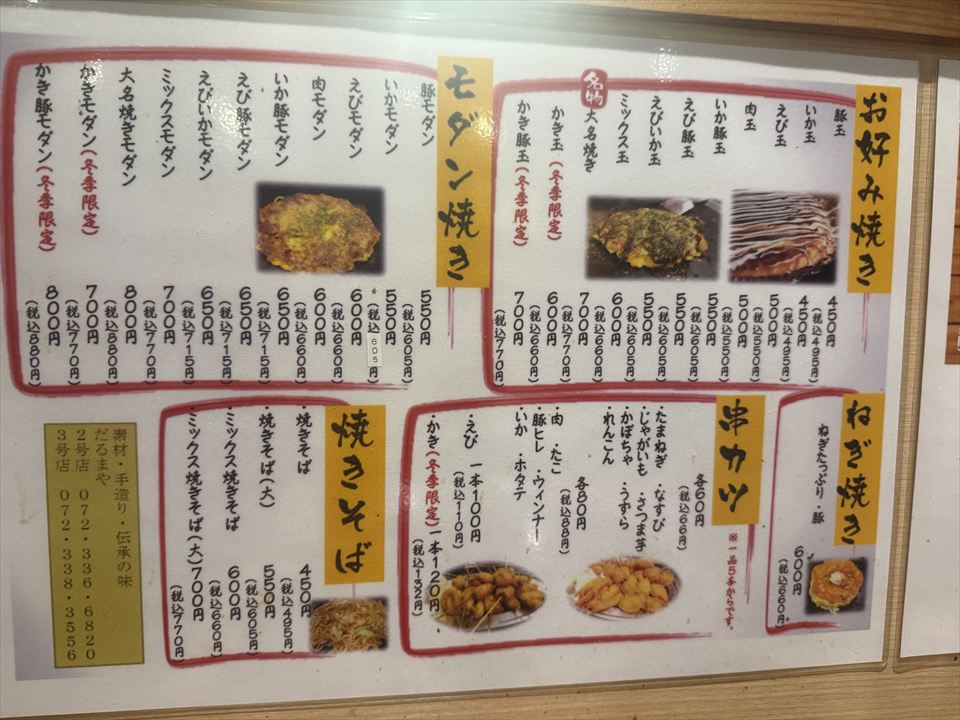 お好み焼き
豚玉 450円
(税込495円)
いか玉 450円
(税込495円)
えび玉 500円
(税込550円)
肉玉 500円
(税込550円)
いか豚玉 550円
(税込605円)
えび豚玉 550円
(税込605円)
えびいか玉 550円
(税込605円)
ミックス玉 600円
(税込660円)
名物 大名焼き 700円
(税込770円)
かき玉(冬季限定) 600円
(税込660円)
かき豚玉(冬季限定) 700円
(税込770円)
モダン焼き
豚モダン 550円
(税込605円)
いかモダン 550円
(税込 605円)
えびモダン 600円
(税込660円)
肉モダン 600円
(税込660円)
いか豚モダン 650円
(税込715円)
えび豚モダン 650円
(税込715円)
えびいかモダン 650円
(税込715円)
ミックスモダン 700円
(税込770円)
大名焼きモダン 800円
(税込880円)
かきモダン(冬季限定) 700円
(税込770円)
かき豚モダン(冬季限定) 800円
(税込880円)
ねぎ焼き
ねぎたっぷり・豚
600円
(税込660円)
串カツ
※一品5本からです。
各60円
(税込66円)
・たまねぎ ・なすび
・じゃがいも ・さつま芋
・かぼちゃ ・うずら
・れんこん
各80円
(税込88円)
・肉 ・たこ
・豚ヒレ ・ウィンナー
・いか ・ホタテ
・えび 一本100円
(税込110円)
・かき(冬季限定)一本120円
(税込132円)
焼きそば
・焼きそば 450円
(税込495円)
・焼きそば(大) 550円
(税込605円)
・ミックス焼きそば 600円
(税込660円)
・ミックス焼きそば(大) 700円
(税込770円)
素材・手造り・伝承の味
だるまや
2号店 072・336・6820
3号店 072・338・3556